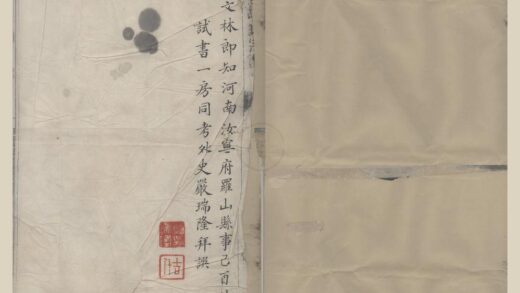 文林郎知河南汝寧府羅山縣事己酉
試書一房同考外史嚴瑞隆拜譔